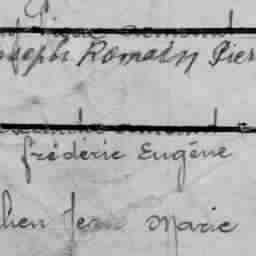 Joseph Romain Pier
frédéric Eugène
hen Jean Marie